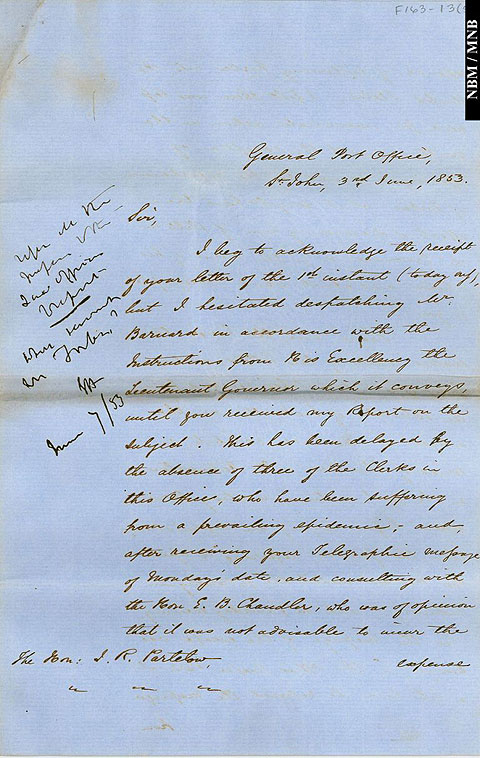 F163-13(
NBM / MNB
General Post Office,
St. John, 3rd June, 1853.
Sir,
I beg to acknowledge the receipt
of your letter of the 1st instant (today only),
but I hesitated despatching Mr.
Barnard in accordance with the
Instructions from His Excellency the
Lieutenant Governor which it conveys,
until you received my Report on the
Subject. This has been delayed by
the absence of three of the Clerks in
this Office, who have been suffering
from a prevailing epidemic, - and,
after receiving your Telegraphic message
of Monday's date, and consulting with
the Hon E. B. Chandler, who was of opinion
that it was not advisable to incur the
expense
The Hon: J. R. Partelow,
" " "
Report
June 7/53